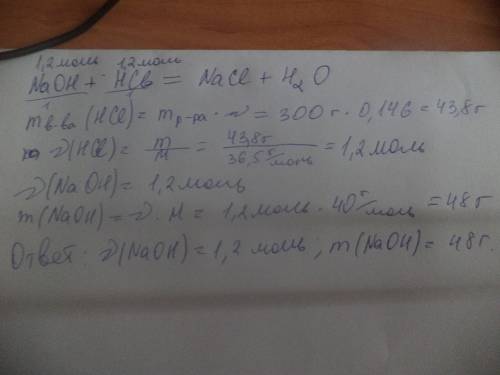 1,2 моль 1,2 моль
NaOH + HCl = NaCl + H₂O
1
m в-ва (HCl) = m р-ра · w = 300 г · 0,146 = 43,8 г
ν(HCl) = m/M = 43,8 г / 36,5 г/моль = 1,2 моль
ν(NaOH) = 1,2 моль
m(NaOH) = ν · M = 1,2 моль · 40 г/моль = 48 г
Ответ: ν(NaOH) = 1,2 моль; m(NaOH) = 48 г.